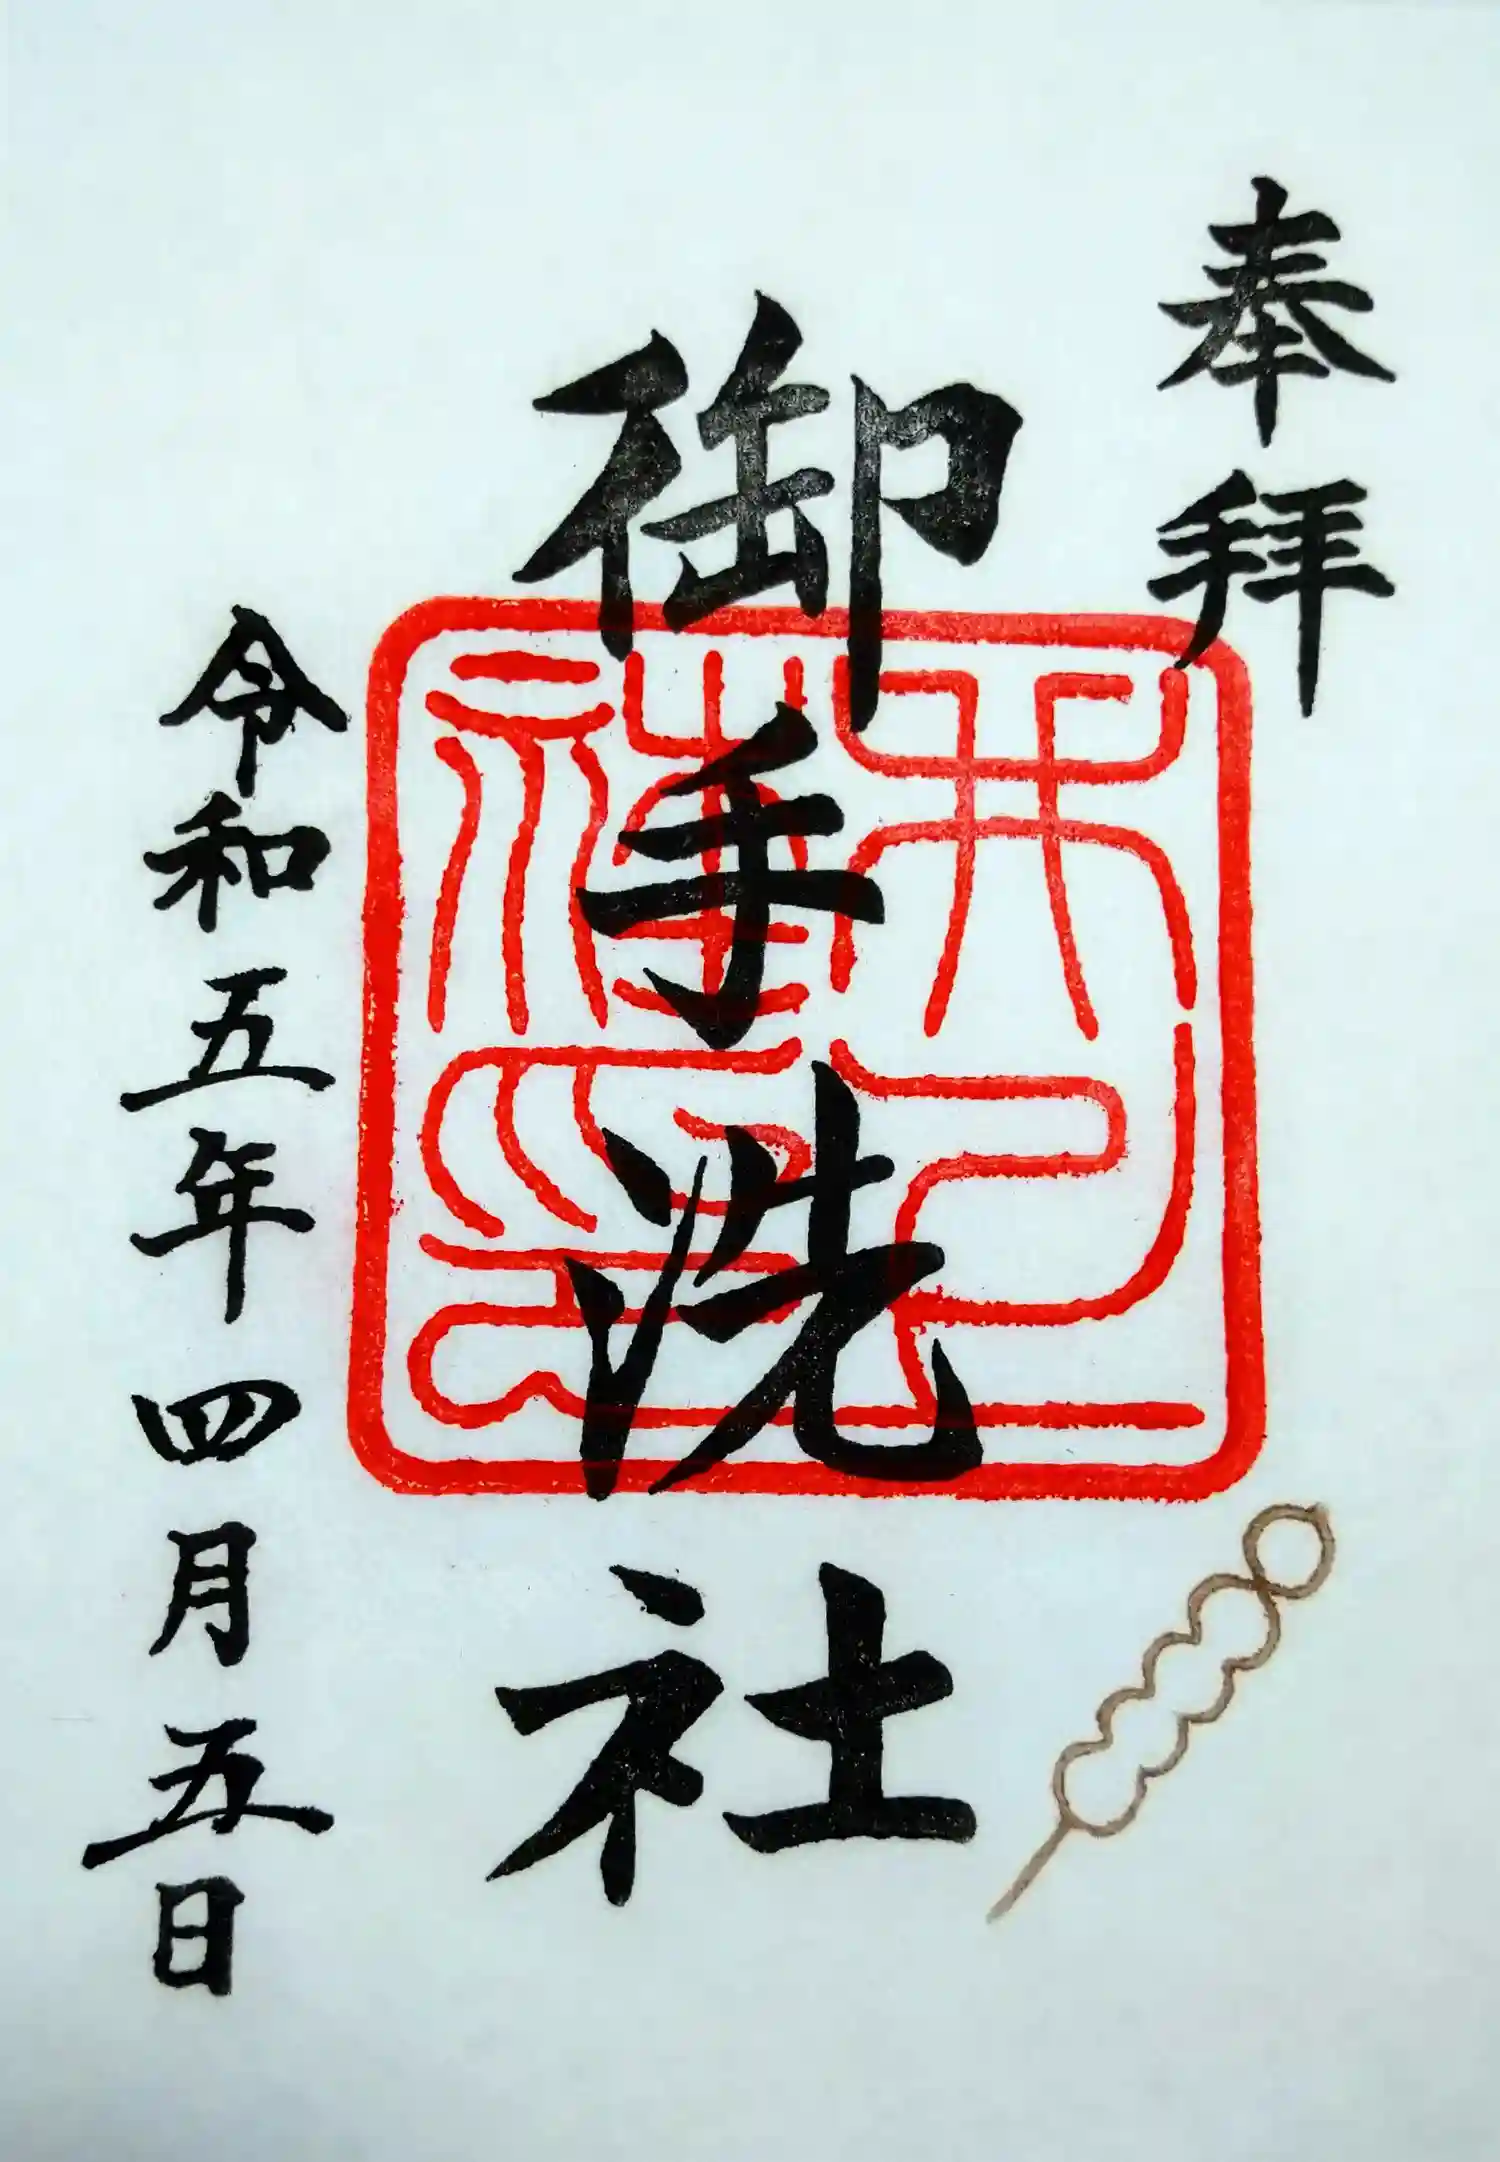 奉拝
御手洗社
令和五年四月五日